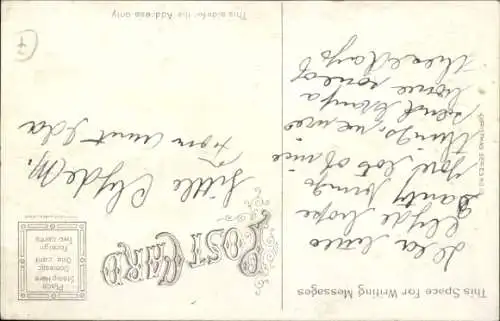 This Space For Writing Messages
This side for the Address only
POST CARD
Place
Stamp Here
Domestic
One cent
Foreign
Two cents
CHRISTMAS SERIES NO.
Clyde hope
Santy brings
you lots of nice
things, we
sent Grandpa
some one of
these days
Little Clyde M.
from Aunt Ida
7